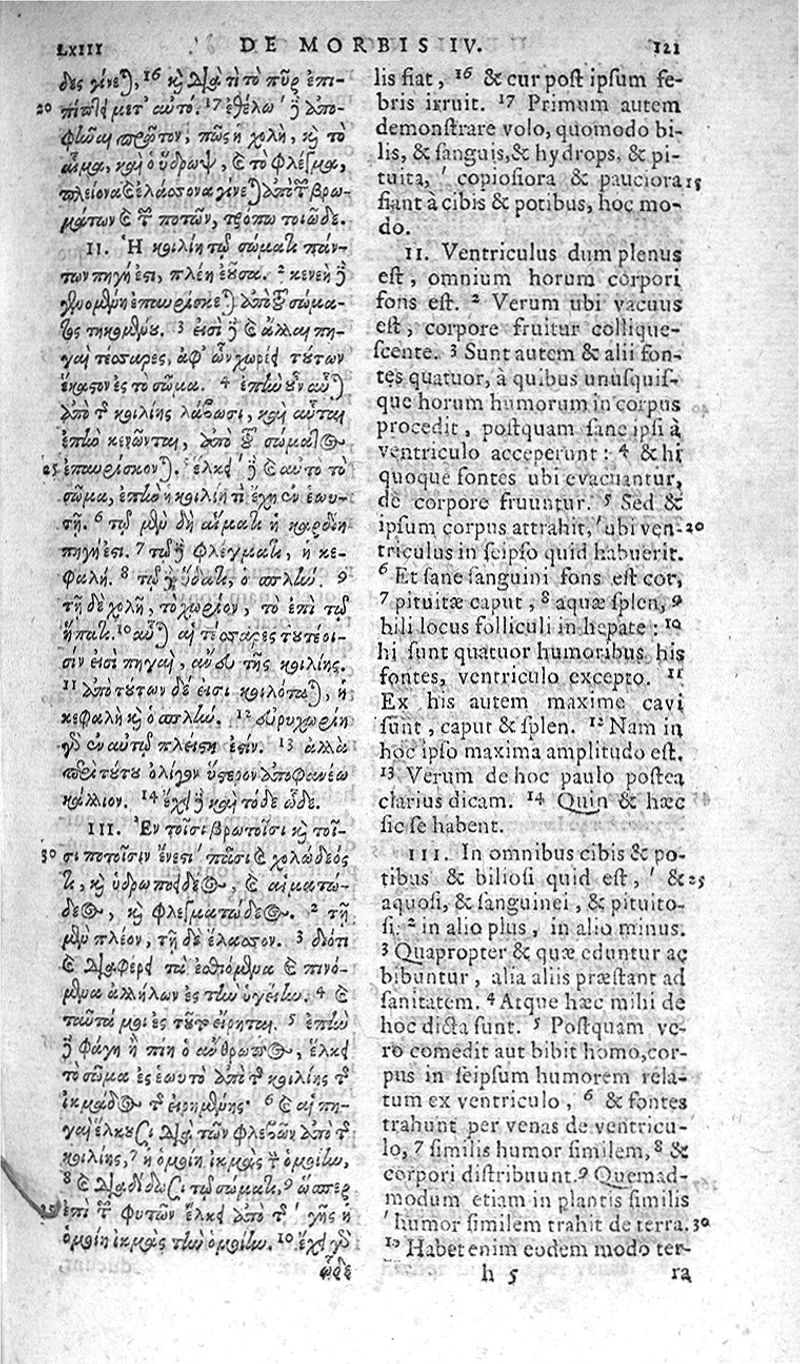 LXIII DE MORBIS IV. 121
δες γίνεται, 16 καὶ διὰ τί τὸ πῦρ ἐπι-
20 πίπτει μετ' αὐτό. 17 ἐθέλω δὲ ἀπο-
φῆναι πρῶτον, πῶς ἡ χολὴ, καὶ τὸ
αἷμα, καὶ ὁ ὕδρωψ, καὶ τὸ φλέγμα,
πλείονα καὶ ἐλάσσονα γίνεται ἀπὸ τῶν βρω-
μάτων καὶ τῶν ποτῶν, τρόπῳ τοιῷδε.
II. Ἡ κοιλίη τῷ σώματι πάν-
των πηγή ἐστι, πλέη ἐοῦσα. 2 κενεὴ δὲ
γινομένη ἐπαυρίσκεται ἀπὸ τοῦ σώμα-
τος τηκομένου. 3 εἰσὶ δὲ καὶ ἄλλαι πη-
γαὶ τέσσαρες, ἀφ' ὧν χωρέει τούτων
ἕκαστον ἐς τὸ σῶμα. 4 ἐπὴν οὖν αὗται
ἀπὸ τῆς κοιλίης λάβωσι, καὶ αὗται
ἐπὴν κενῶνται, ἀπὸ τοῦ σώματος
25 ἐπαυρίσκονται. 5 ἕλκει δὲ καὶ αὐτὸ τὸ
σῶμα, ἐπὴν ἡ κοιλίη τι ἔχῃ ἐν ἑωυ-
τῇ. 6 τῷ μὲν δὴ αἵματι ἡ καρδίη
πηγή ἐστι. 7 τῷ δὲ φλέγματι, ἡ κε-
φαλή. 8 τῷ δὲ ὕδατι, ὁ σπλήν. 9
τῇ δὲ χολῇ, τὸ χωρίον, τὸ ἐπὶ τῷ
ἥπατι. 10 αὗται αἱ τέσσαρες τουτέοι-
σίν εἰσι πηγαὶ, ἄνευ τῆς κοιλίης.
11 ἀπὸ τούτων δέ εἰσι κοιλόταται, ἡ
κεφαλὴ καὶ ὁ σπλήν. 12 εὐρυχωρίη
γὰρ ἐν αὐτῷ πλείστη ἐστίν. 13 ἀλλὰ
περὶ τούτου ὀλίγον ὕστερον ἀποφανέω
κάλλιον. 14 ἔχει δὲ καὶ τόδε ὧδε.
III. Ἐν τοῖσι βρωτοῖσι καὶ τοῖ-
30 σι ποτοῖσιν ἔνεστι πᾶσι καὶ χολώδεός
τι, καὶ ὑδρωποειδέος, καὶ αἱματώ-
δεος, καὶ φλεγματώδεος. 2 τῇ
μὲν πλέον, τῇ δὲ ἔλασσον. 3 διότι
καὶ διαφέρει τὰ ἐσθιόμενα καὶ πινό-
μενα ἀλλήλων ἐς τὴν ὑγείην. 4 καὶ
ταῦτά μοι ἐς τοῦτο εἴρηται. 5 ἐπὴν
δὲ φάγῃ ἢ πίῃ ὁ ἄνθρωπος, ἕλκει
τὸ σῶμα ἐς ἑωυτὸ ἀπὸ τῆς κοιλίης τῆς
ἰκμάδος τῆς εἰρημένης· 6 καὶ αἱ πη-
γαὶ ἕλκουσι διὰ τῶν φλεβῶν ἀπὸ τῆς
κοιλίης, 7 ἡ ὁμοίη ἰκμὰς τὴν ὁμοίην,
8 καὶ διαδίδωσι τῷ σώματι, 9 ὥσπερ
35 ἐπὶ τῶν φυτῶν ἕλκει ἀπὸ τῆς γῆς ἡ
ὁμοίη ἰκμὰς τὴν ὁμοίην. 10 ἔχει γὰρ
ὧδε
lis fiat, 16 & cur post ipsum fe-
bris irruit. 17 Primum autem
demonstrare volo, quomodo bi-
lis, & sanguis, & hydrops, & pi-
tuita, ' copiosiora & pauciora 15
fiant à cibis & potibus, hoc mo-
do.
II. Ventriculus dum plenus
est, omnium horum corpori
fons est. 2 Verum ubi vacuus
est, corpore fruitur collique-
scente. 3 Sunt autem & alii fon-
tes quatuor, à quibus unusquis-
que horum humorum in corpus
procedit, postquam sane ipsi à
ventriculo acceperunt: 4 & hi
quoque fontes ubi evacuantur,
de corpore fruuntur. 5 Sed &
ipsum corpus attrahit, ' ubi ven- 20
triculus in seipso quid habuerit.
6 Et sane sanguini fons est cor,
7 pituitæ caput, 8 aquæ splen, 9
bili locus folliculi in hepate: 10
hi sunt quatuor humoribus his
fontes, ventriculo excepto. 11
Ex his autem maxime cavi
sunt, caput & splen. 12 Nam in
hoc ipso maxima amplitudo est.
13 Verum de hoc paulo postea
clarius dicam. 14 Quin & hæc
sic se habent.
III. In omnibus cibis & po-
tibus & biliosi quid est, ' & 25
aquosi, & sanguinei, & pituito-
si. 2 in alio plus, in alio minus.
3 Quapropter & quæ eduntur ac
bibuntur, alia aliis præstant ad
sanitatem. 4 Atque hæc mihi de
hoc dicta sunt. 5 Postquam ve-
ro comedit aut bibit homo, cor-
pus in seipsum humorem rela-
tum ex ventriculo, 6 & fontes
trahunt per venas de ventricu-
lo, 7 similis humor similem, 8 &
corpori distribuunt. 9 Quemad-
modum etiam in plantis similis
' humor similem trahit de terra. 30
10 Habet enim eodem modo ter-
h 5 ra